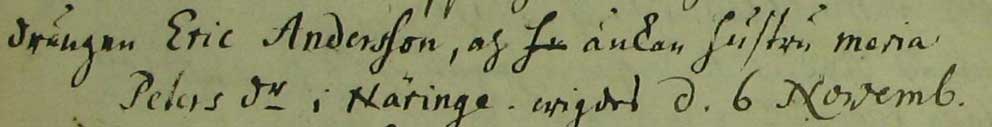 drängen Eric Andersson, och änkan hustru maria
Peters dr i Näringe. wigdes d. 6 Novemb.